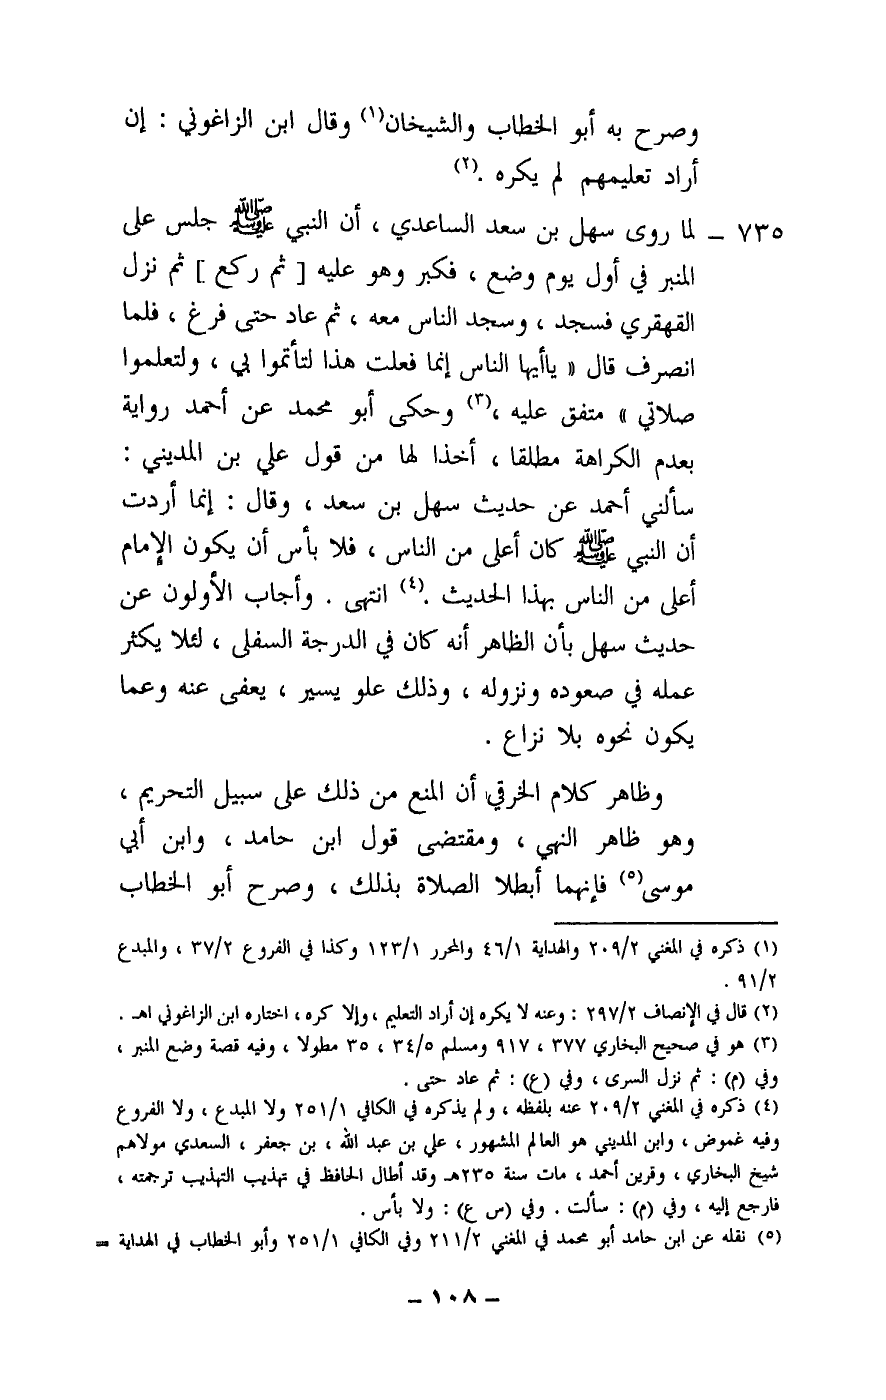 وصرح به أبو الخطاب والشيخان(١) وقال ابن الزاغوني : إن
أراد تعليمهم لم يكره .(٢)
٧٣٥ – لما روى سهل بن سعد الساعدي ، أن النبي ﷺ جلس على
المنبر في أول يوم وضع ، فكبر وهو عليه [ ثم ركع ] ثم نزل
القهقري فسجد ، وسجد الناس معه ، ثم عاد حتى فرغ ، فلما
انصرف قال « ياأيها الناس إنما فعلت هذا لتأتموا بي ، ولتعلموا
صلاتي » متفق عليه ،(٣) وحكى أبو محمد عن أحمد رواية
بعدم الكراهة مطلقا ، أخذا لها من قول علي بن المديني :
سألني أحمد عن حديث سهل بن سعد ، وقال : إنما أردت
أن النبي ﷺ كان أعلى من الناس ، فلا بأس أن يكون الإمام
أعلى من الناس بهذا الحديث .(٤) انتهى . وأجاب الأولون عن
حديث سهل بأن الظاهر أنه كان في الدرجة السفلى ، لئلا يكثر
عمله في صعوده ونزوله ، وذلك علو يسير ، يعفى عنه وعما
يكون نحوه بلا نزاع .
وظاهر كلام الخرقي أن المنع من ذلك على سبيل التحريم ،
وهو ظاهر النهي ، ومقتضى قول ابن حامد ، وابن أبي
موسى(٥) فإنهما أبطلا الصلاة بذلك ، وصرح أبو الخطاب
(١) ذكره في المغني ٢٠٩/٢ والهداية ٤٦/١ والمحرر ١٢٣/١ وكذا في الفروع ٣٧/٢ ، والمبدع
٩١/٢ .
(٢) قال في الإنصاف ٢٩٧/٢ : وعنه لا يكره إن أراد التعليم ، وإلا كره ، اختاره ابن الزاغوني اهـ .
(٣) هو في صحيح البخاري ٣٧٧ ، ٩١٧ ومسلم ٣٤/٥ ، ٣٥ مطولا ، وفيه قصة وضع المنبر ،
وفي (م) : ثم نزل السرى ، وفي (ع) : ثم عاد حتى .
(٤) ذكره في المغني ٢٠٩/٢ عنه بلفظه ، ولم يذكره في الكافي ٢٥١/١ ولا المبدع ، ولا الفروع
وفيه غموض ، وابن المديني هو العالم المشهور ، علي بن عبد الله ، بن جعفر ، السعدي مولاهم
شيخ البخاري ، وقرين أحمد ، مات سنة ٢٣٥هـ وقد أطال الحافظ في تهذيب التهذيب ترجمته ،
فارجع إليه ، وفي (م) : سألت . وفي (س ع) : ولا بأس .
(٥) نقله عن ابن حامد أبو محمد في المغني ٢١١/٢ وفي الكافي ٢٥١/١ وأبو الخطاب في الهداية =
– ١٠٨ –